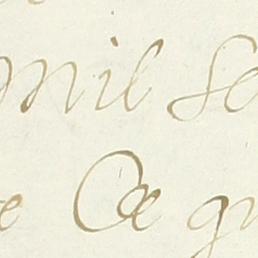 mil se
e Ce qu